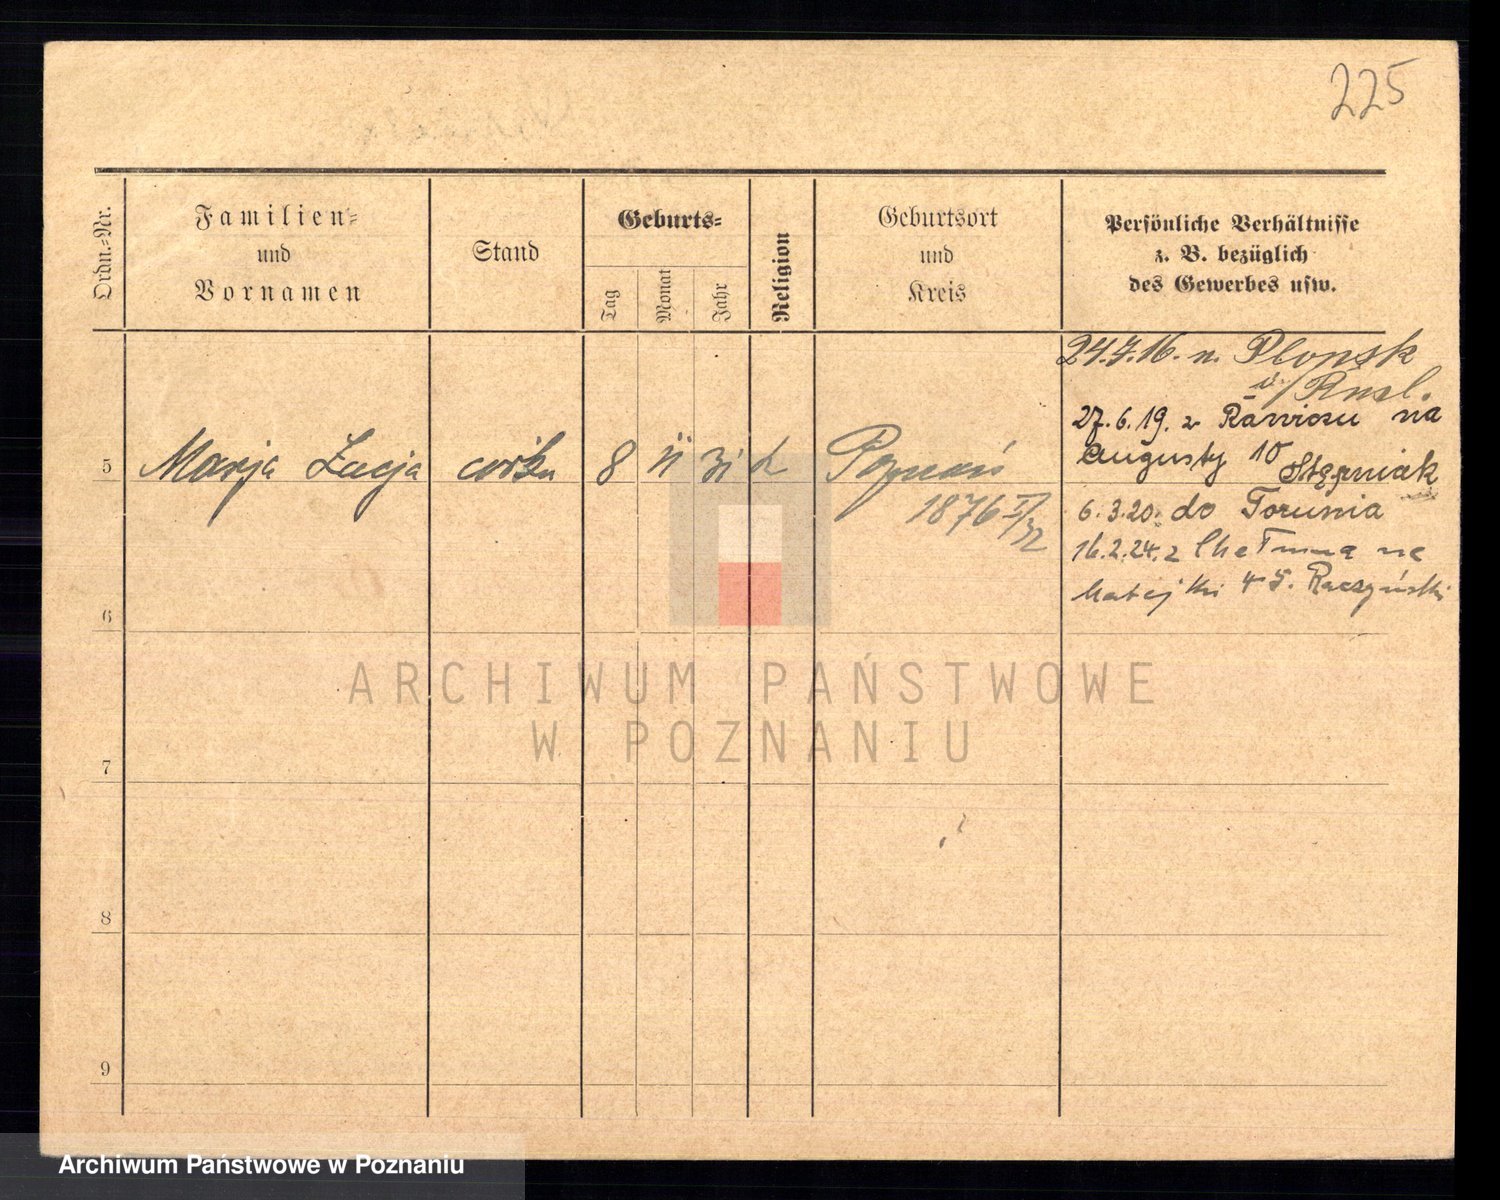 225
Ordn.-Nr.
Familien-
und
Vornamen
Stand
Geburts-
Tag
Monat
Jahr
Religion
Geburtsort
und
Kreis
Persönliche Verhältnisse
z. B. bezüglich
des Gewerbes usw.
24.7.16. n. Plonsk
i/Rusl.
27.6.19. z Rawiczu na
Augusty 10 Stępniak
5 Marja Łucja córka 8 11 31 k Poznań
1876 I/32
6.3.20. do Torunia
16.2.24. z Chełmna na
Matejki 45. Raczyński
6
7
8
9
ARCHIWUM PAŃSTWOWE
W POZNANIU
Archiwum Państwowe w Poznaniu